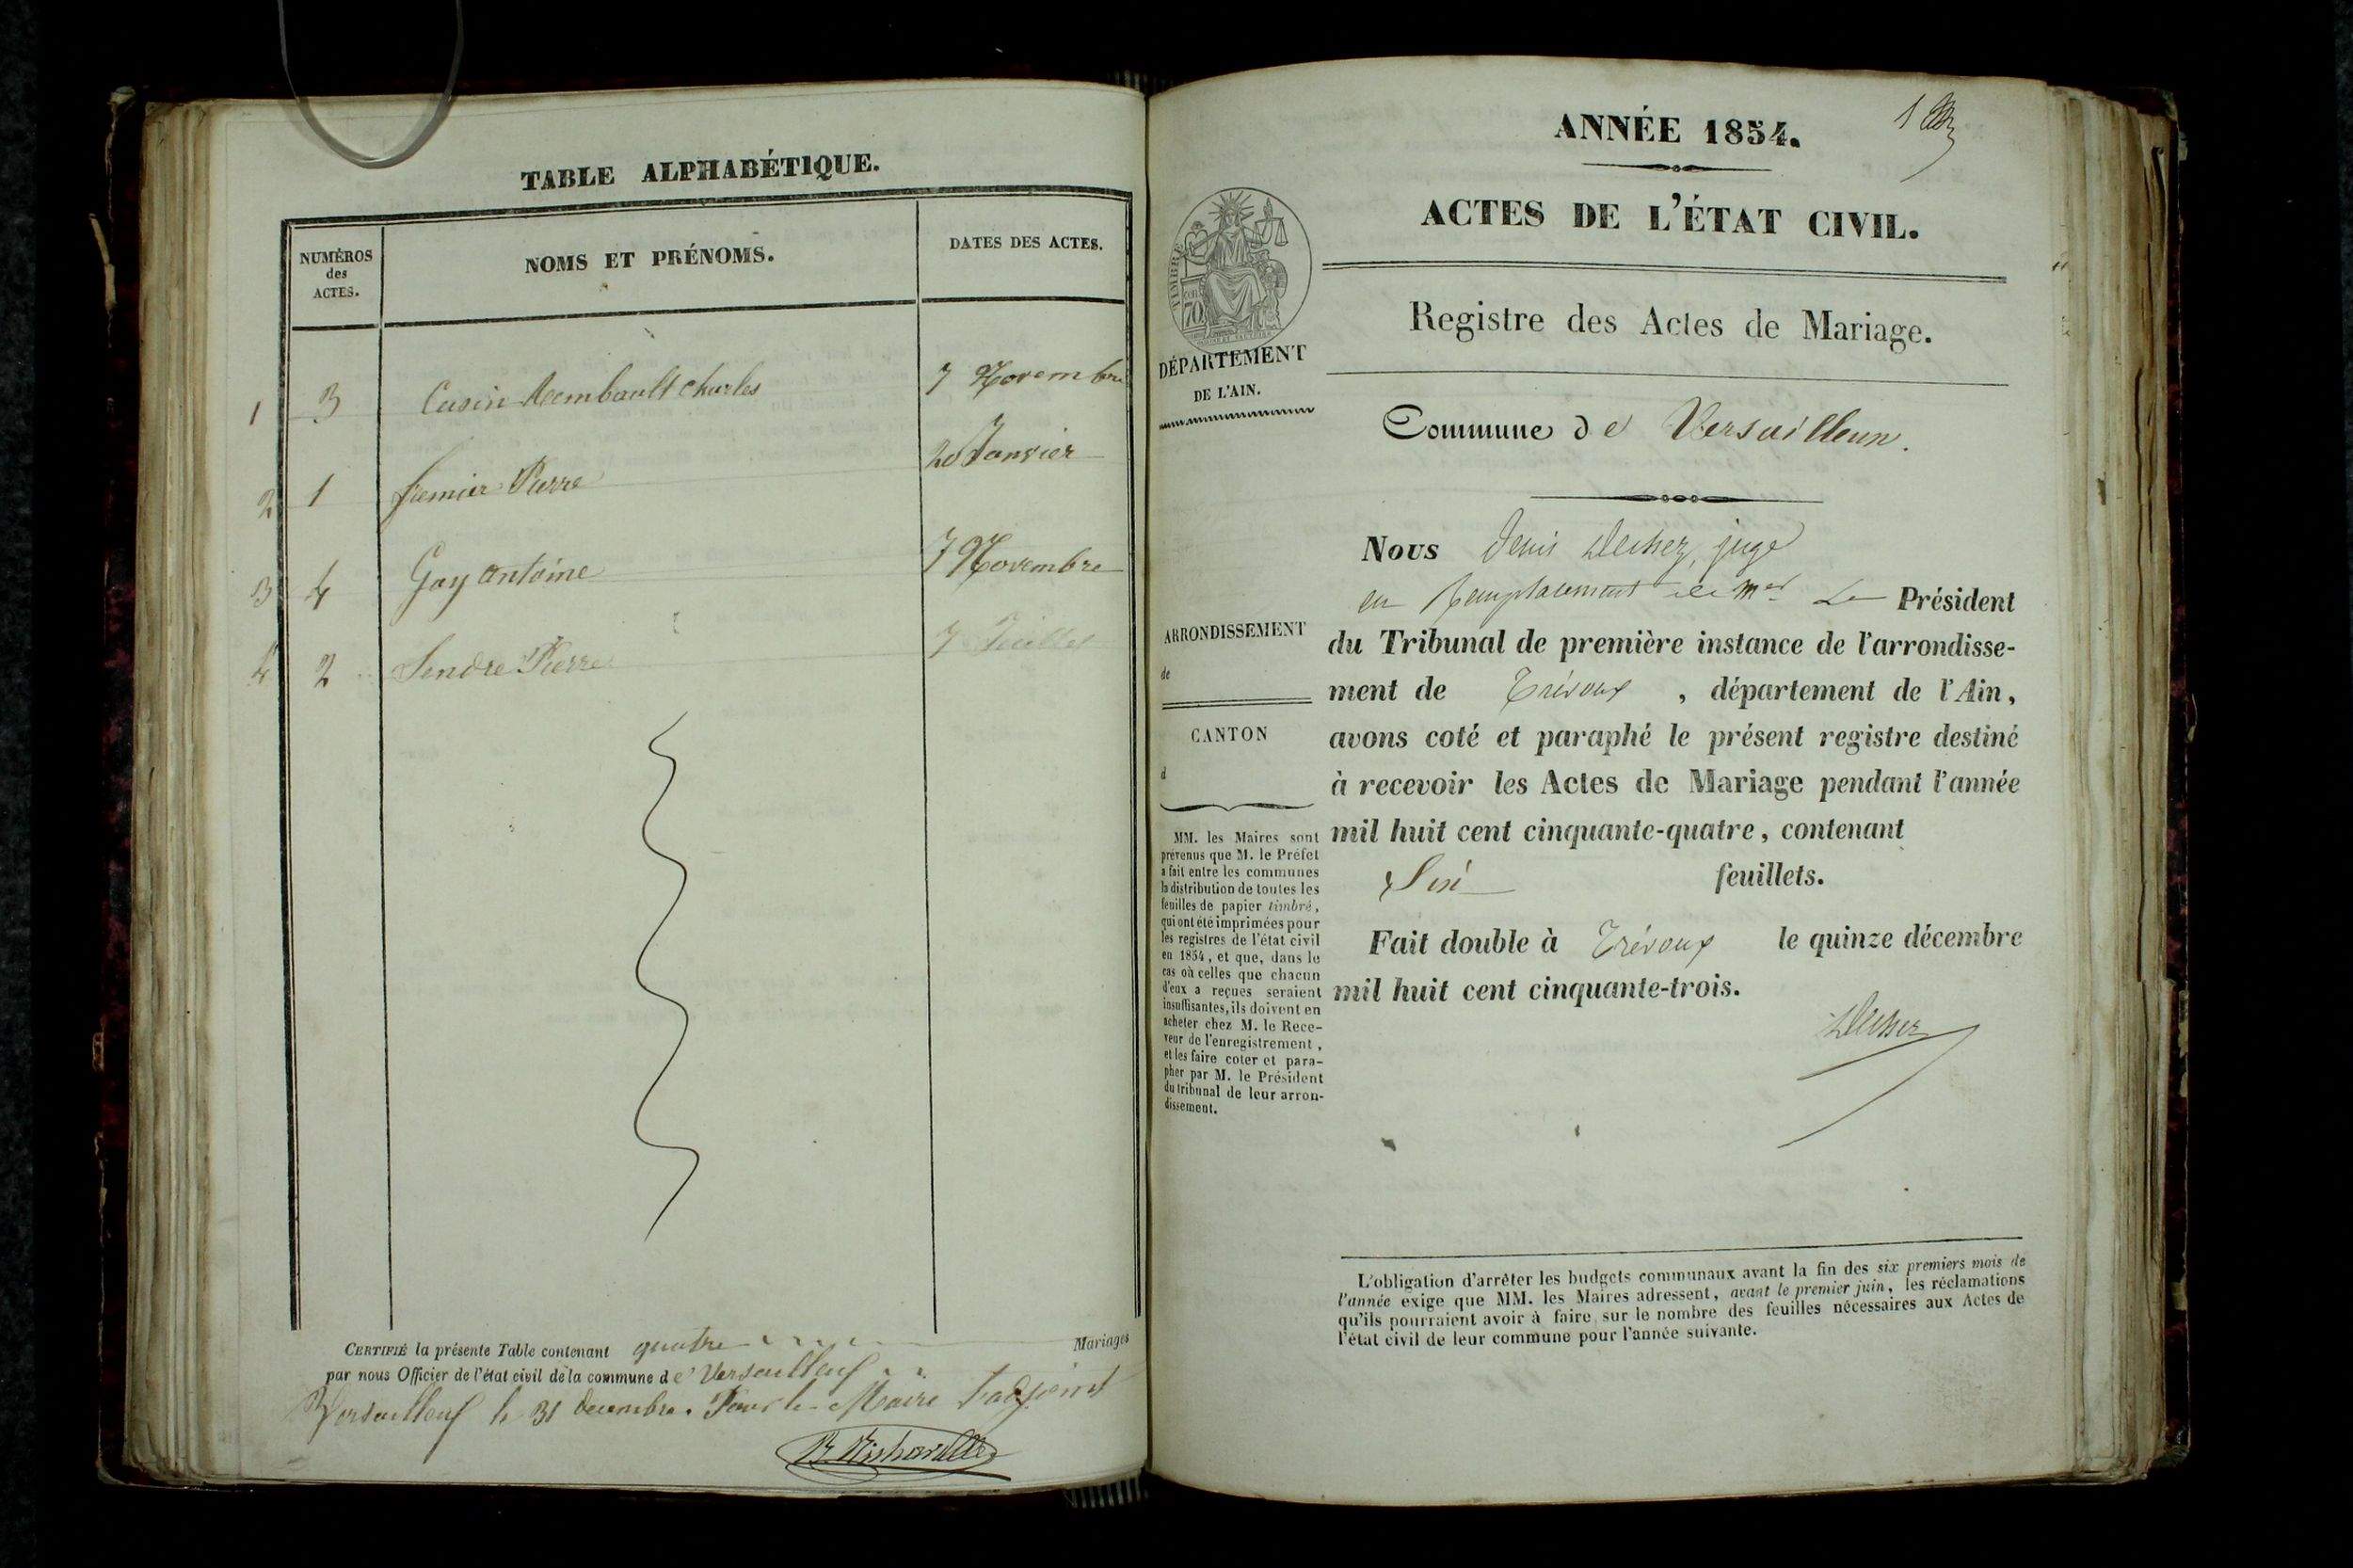 TABLE ALPHABÉTIQUE.
NUMÉROS
des
ACTES.
NOMS ET PRÉNOMS.
DATES DES ACTES.
1 3 Cusin Charles 7 Novembre
2 1 Pierre 20 Janvier
3 4 Gay Antoine 7 Novembre
4 2 Sendre Pierre 7 Juillet
CERTIFIÉ la présente Table contenant quatre Mariages
par nous Officier de l'état civil de la commune de Versailleux
Versailleux le 31 Decembre. Pour le Maire l'adjoint
ANNÉE 1854.
1
ACTES DE L'ÉTAT CIVIL.
Registre des Actes de Mariage.
TIMBRE
70
DÉPARTEMENT
DE L'AIN.
Commune de Versailleux.
Nous Denis juge
en Remplacement de Mr Le Président
du Tribunal de première instance de l'arrondisse-
ment de Trévoux, département de l'Ain,
avons coté et paraphé le présent registre destiné
à recevoir les Actes de Mariage pendant l'année
mil huit cent cinquante-quatre, contenant
Six feuillets.
Fait double à Trévoux le quinze décembre
mil huit cent cinquante-trois.
ARRONDISSEMENT
de
CANTON
d
MM. les Maires sont
prévenus que M. le Préfet
a fait entre les communes
la distribution de toutes les
feuilles de papier timbré,
qui ont été imprimées pour
les registres de l'état civil
en 1854, et que, dans le
cas où celles que chacun
d'eux a reçues seraient
insuffisantes, ils doivent en
acheter chez M. le Rece-
veur de l'enregistrement,
et les faire coter et para-
pher par M. le Président
du tribunal de leur arron-
dissement.
L'obligation d'arrêter les budgets communaux avant la fin des six premiers mois de
l'année exige que MM. les Maires adressent, avant le premier juin, les réclamations
qu'ils pourraient avoir à faire sur le nombre des feuilles nécessaires aux Actes de
l'état civil de leur commune pour l'année suivante.